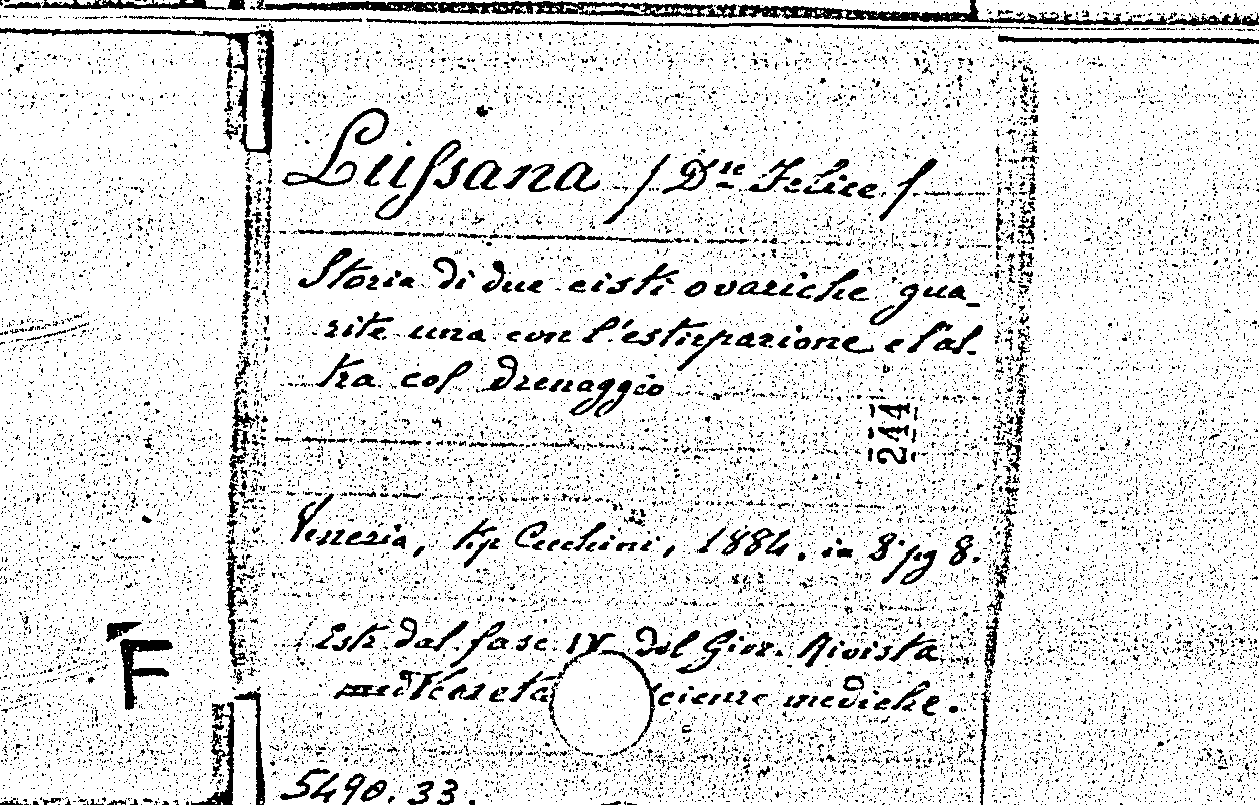 Lussana (D.re Felice)
Storia di due cisti ovariche gua-
rite una con l'estirpazione e l'al-
tra col drenaggio
244
Venezia, tip Cecchini, 1884. in 8° pg 8.
Estr dal fasc IV del Gior. Rivista
scienze mediche.
F
5490.33.